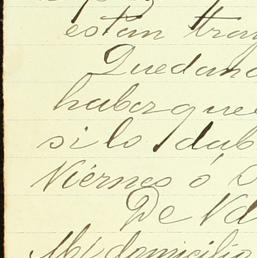 están tra
Quedand
haber que
si lo dub
Viérnes ó D
De Vd
Mi domicilio